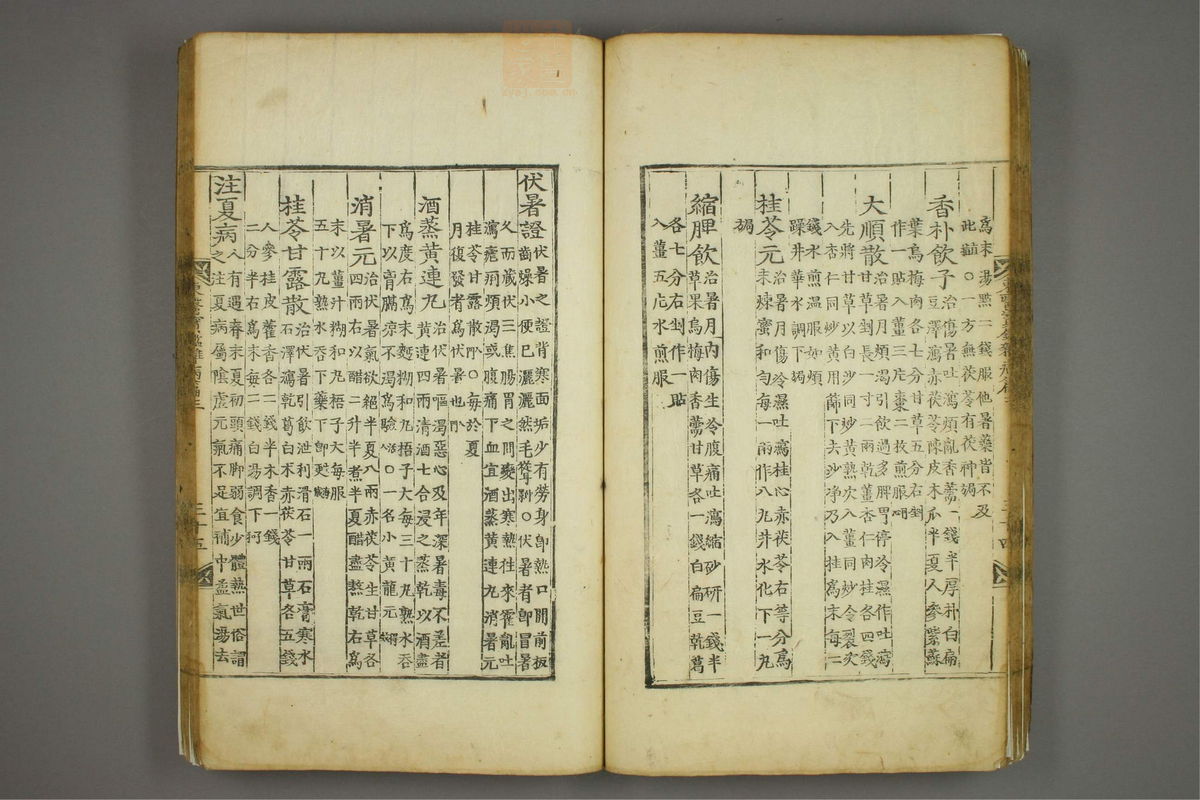 爲末湯點二錢服他暑藥皆不及
此○一方無茯苓有茯神局
香朴飮子治傷暑吐瀉煩亂香薷一錢半厚朴白扁
豆澤瀉赤茯苓陳皮木瓜半夏人參紫蘇
葉烏梅肉各七分甘草五分右剉
作一貼入薑三片棗二枚煎服
大順散治暑月煩渴引飮過多脾胃停冷濕作吐瀉
甘草剉長一寸二兩乾薑杏仁肉桂各四錢
先將甘草以白沙同炒黃熟次入薑同炒令裂次
入杏仁同炒黃用篩下去沙淨乃入桂爲末每二
錢水煎溫服如煩
躁井華水調下局
桂苓元治暑月傷冷濕吐瀉桂心赤茯苓右等分爲
末煉蜜和勻每一兩作八丸井水化下一丸
局
縮脾飮治暑月內傷生冷腹痛吐瀉縮砂硏一錢半
草果烏梅肉香薷甘草各一錢白扁豆乾葛
各七分右剉作一貼
入薑五片水煎服
三十四
伏暑證伏暑之證背寒面垢少有勞身卽熱口開前板
齒燥小便已灑然毛聳○伏暑者卽冒暑
久而藏伏三焦腸胃之間變出寒熱往來霍亂吐
瀉瘧痢煩渴或腹痛下血宜酒蒸黃連丸消暑元
桂苓甘露散入門○每於夏
月復發者爲伏暑也入門
酒蒸黃連丸治伏暑嘔渴惡心及年深暑毒不差者
黃連四兩清酒七合浸之蒸乾以酒盡
爲度右爲末麪糊和丸梧子大每三十丸熟水呑
下以胷膈凉不渴爲驗活○一名小黃龍元
消暑元治伏暑氣欲絶半夏八兩赤茯苓生甘草各
四兩右以醋二升煮半夏醋盡熬乾右爲
末以薑汁糊和丸梧子大每服
五十丸熟水呑下藥下卽甦
桂苓甘露散治伏暑引飮泄利滑石一兩石膏寒水
石澤瀉乾葛白朮赤茯苓甘草各五錢
人參桂皮藿香各二錢半木香一錢
二分半右爲末每二錢白湯調下河
注夏病人有遇春末夏初頭痛脚弱食少體熱世俗謂
之注夏病屬陰虛元氣不足宜補中益氣湯去
東醫寶鑑雜病篇三
三十五